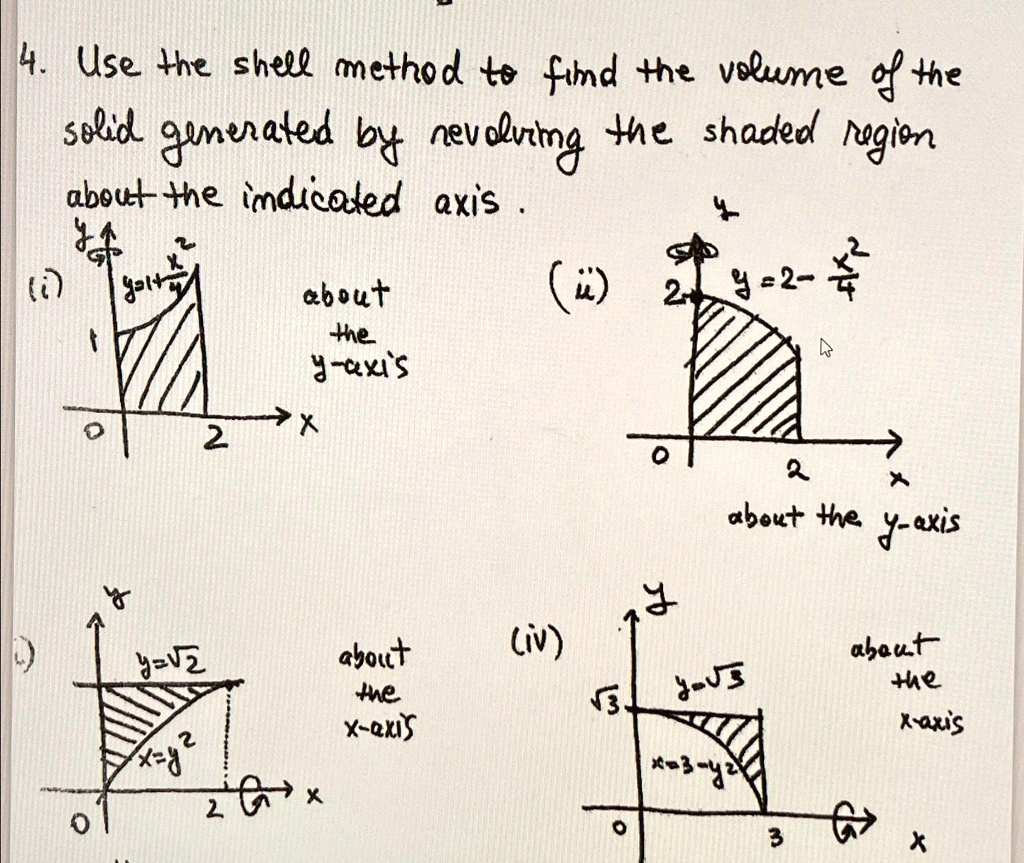 4. Use the shell method to find the volume of the
solid generated by revolving the shaded region
about the indicated axis.
(i)
y
y=1+x²/4
1
0
2
x
about
the
y-axis
(ii)
y
2
y=2-x²/4
0
2
x
about the y-axis
)
y
y=√2
x=y²
0
2
x
about
the
x-axis
(iv)
y
√3
y=√3
x=3-y²
0
3
x
about
the
x-axis